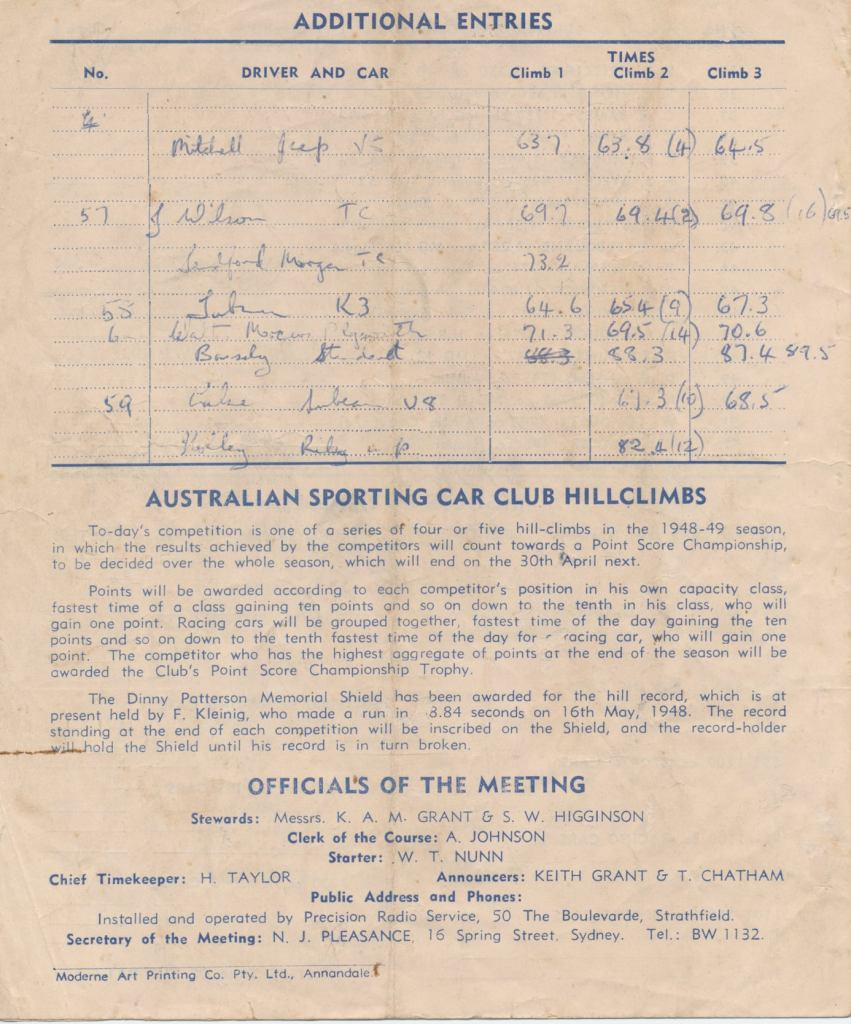 ADDITIONAL ENTRIES
TIMES
No. DRIVER AND CAR Climb 1 Climb 2 Climb 3
Mitchell Jeep 63.7 63.8 (4) 64.5
57 J Wilson TC 69.7 69.4 (2) 69.8 (16)
Morgan TC 73.2
K3 64.6 65.4 (9) 67.3
71.3 69.5 (14) 70.6
88.3 87.4 89.5
59 V8 (10) 68.5
82.4 (12)
AUSTRALIAN SPORTING CAR CLUB HILLCLIMBS
To-day's competition is one of a series of four or five hill-climbs in the 1948-49 season,
in which the results achieved by the competitors will count towards a Point Score Championship,
to be decided over the whole season, which will end on the 30th April next.
Points will be awarded according to each competitor's position in his own capacity class,
fastest time of a class gaining ten points and so on down to the tenth in his class, who will
gain one point. Racing cars will be grouped together, fastest time of the day gaining the ten
points and so on down to the tenth fastest time of the day for racing car, who will gain one
point. The competitor who has the highest aggregate of points at the end of the season will be
awarded the Club's Point Score Championship Trophy.
The Dinny Patterson Memorial Shield has been awarded for the hill record, which is at
present held by F. Kleinig, who made a run in 3.84 seconds on 16th May, 1948. The record
standing at the end of each competition will be inscribed on the Shield, and the record-holder
will hold the Shield until his record is in turn broken.
OFFICIALS OF THE MEETING
Stewards: Messrs. K. A. M. GRANT & S. W. HIGGINSON
Clerk of the Course: A. JOHNSON
Starter: W. T. NUNN
Chief Timekeeper: H. TAYLOR Announcers: KEITH GRANT & T. CHATHAM
Public Address and Phones:
Installed and operated by Precision Radio Service, 50 The Boulevarde, Strathfield.
Secretary of the Meeting: N. J. PLEASANCE, 16 Spring Street, Sydney. Tel.: BW 1132.
Moderne Art Printing Co. Pty. Ltd., Annandale.